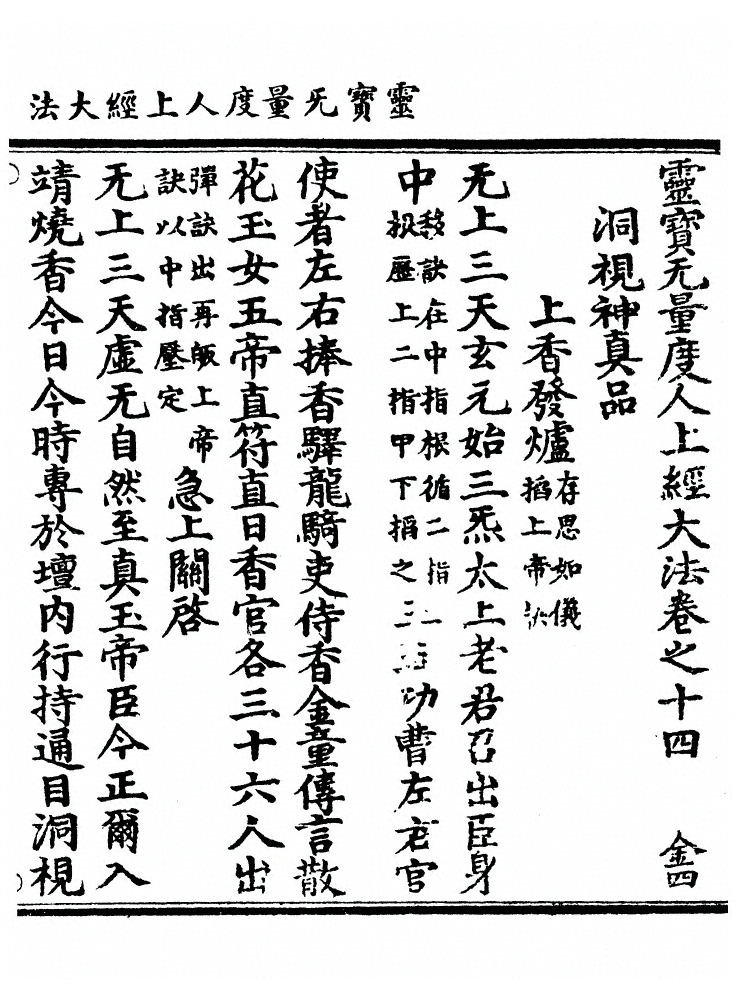 靈寶无量度人上經大法
靈寶无量度人上經大法卷之十四 金四
洞視神真品
上香發爐 存思如儀
掐上帝
无上三天玄元始三炁太上老君召出臣身
中 移訣在中指根循二指
扱歷上二指甲下掐之 三五功曹左右官
使者左右捧香驛龍騎吏侍香金童傳言散
花玉女五帝直符直日香官各三十六人出
彈訣出再皈上帝
訣以中指壓定 急上關啓
无上三天虛无自然至真玉帝臣今正爾入
靖燒香今日今時專於壇內行持通目洞視